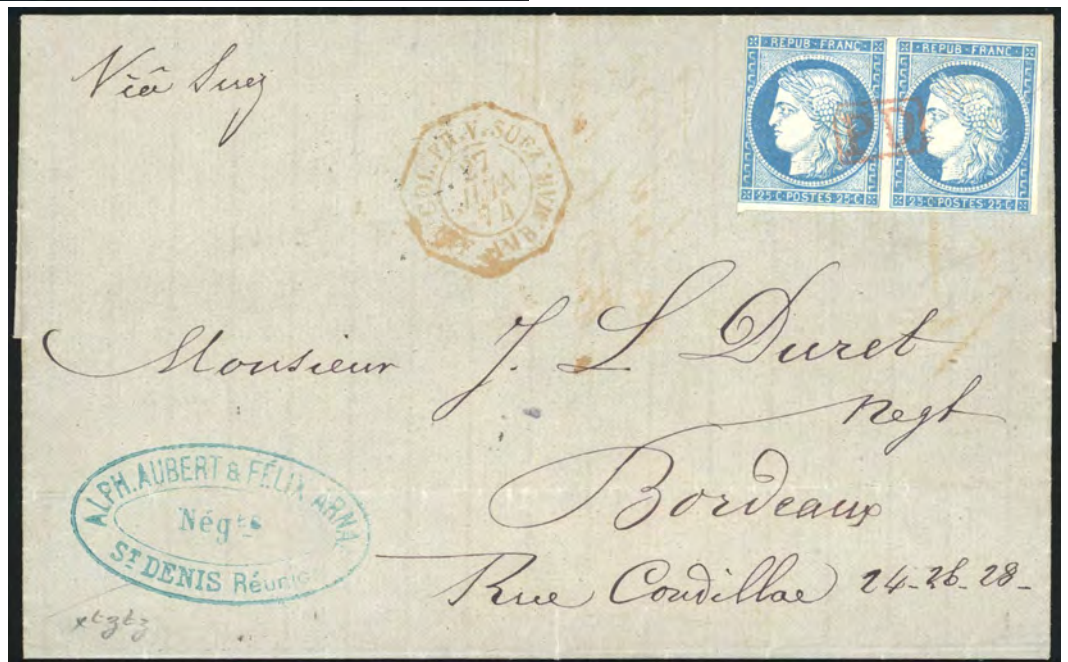 Viâ Suez
REPUB·FRANC·
25·C·POSTES 25·C·
REPUB·FRANC·
25·C·POSTES 25·C·
PD
COL. FR. V. SUEZ
27
JUIN
74
Monsieur J. L Duret
Negt
Bordeaux
Rue Condillac 24-26-28-
ALPH. AUBERT & FÉLIX ARNA
Négts
ST DENIS Réunion